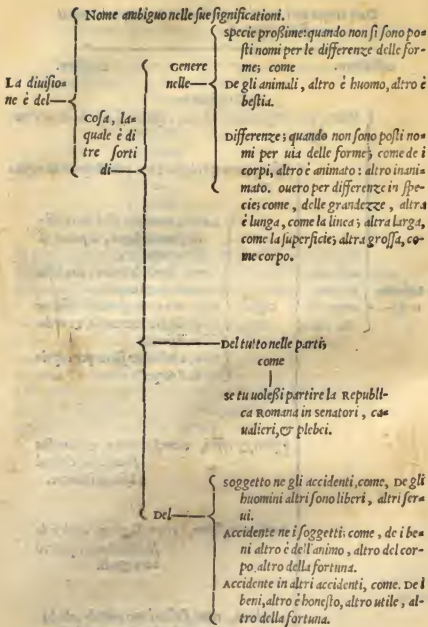 Nome ambiguo nelle sue significationi.
La diuisio=
ne è del
Cosa, la=
quale è di
tre sorti
di
Genere
nelle
specie proßime: quando non si sono po
sti nomi per le differenze delle for=
me; come
De gli animali, altro è huomo, altro è
bestia.
Differenze; quando non sono posti no
mi per uia delle forme; come de i
corpi, altro è animato: altro inani=
mato. ouero per differenze in spe=
cie; come, delle grandezze, altra
è lunga, come la linea; altra larga,
come la superficie; altra grossa, co=
me corpo.
Del tutto nelle parti;
come
se tu uoleßi partire la Republi=
ca Romana in senatori, ca=
ualieri, & plebei.
Del
soggetto ne gli accidenti, come, De gli
huomini altri sono liberi, altri ser=
ui.
Accidente ne i soggetti: come, de i be=
ni altro è dell'animo, altro del cor=
po, altro della fortuna.
Accidente in altri accidenti, come. De i
beni, altro è honesto, altro utile, al=
tro della fortuna.